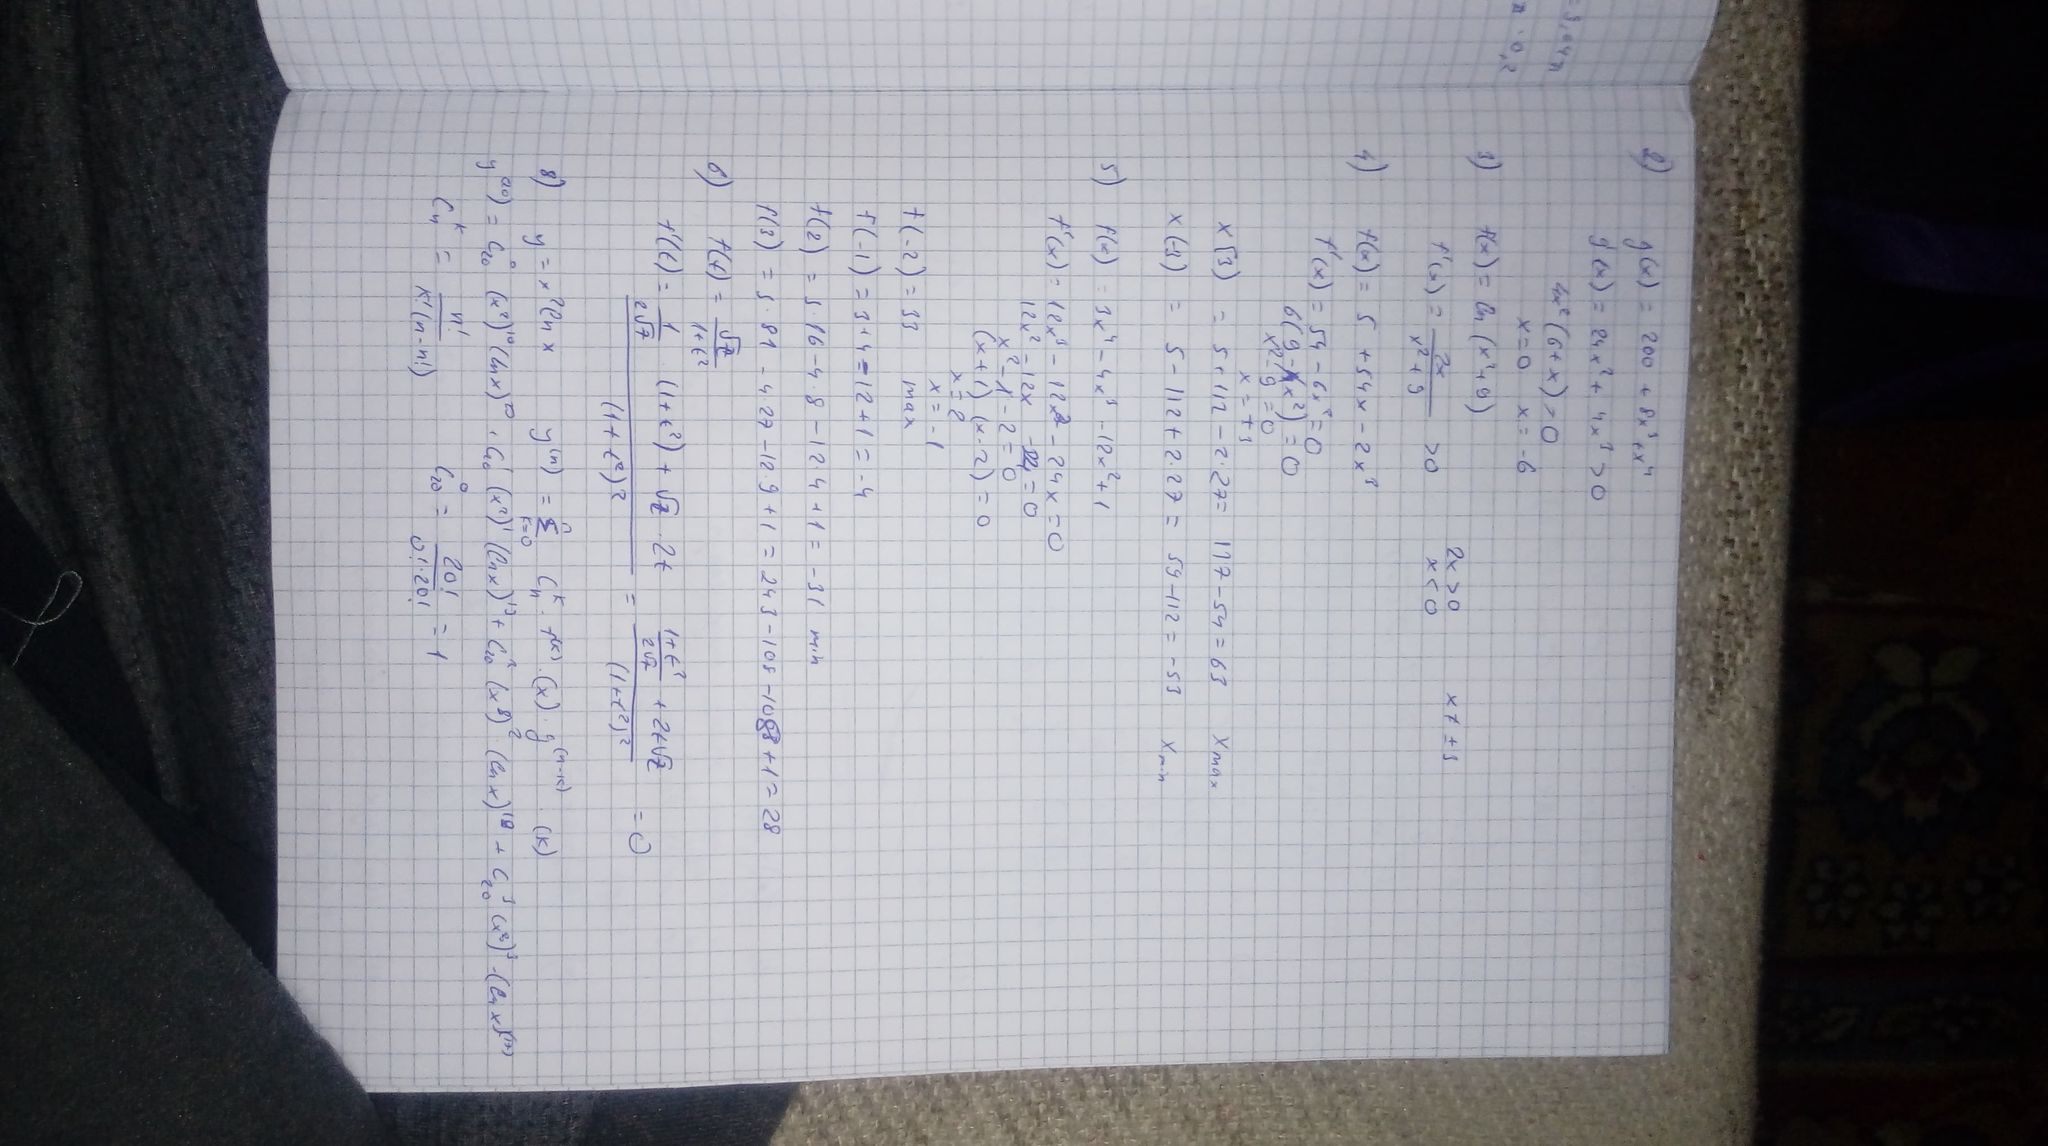 = 3,64π
π · 0,2
2) g(x) = 200 + 8x³ + x⁴
g'(x) = 24x² + 4x³ > 0
4x²(6+x) > 0
x=0 x=-6
3) f(x) = ln(x²+9)
f'(x) = 2x / x²+9 > 0 2x>0
x<0 x ≠ ±3
4) f(x) = 5 + 54x - 2x³
f'(x) = 54 - 6x² = 0
6(9 - x²) = 0
x² - 9 = 0
x = ±3
x(3) = 5 + 112 - 2·27 = 117 - 54 = 63 x max
x(-3) = 5 - 112 + 2·27 = 59 - 112 = -53 x min
5) f(x) = 3x⁴ - 4x³ - 12x² + 1
f'(x) = 12x³ - 12x² - 24x = 0
12x² - 12x - 24 = 0
x² - 1 - 2 = 0
(x+1)(x-2) = 0
x = 2
x = -1
f(-2) = 33 max
f(-1) = 3 + 4 - 12 + 1 = -4
f(2) = 5·16 - 4·8 - 124 + 1 = -31 min
f(3) = 3·81 - 4·27 - 12·9 + 1 = 243 - 108 - 108 + 1 = 28
6) f(t) = √t / 1+t²
f'(t) = 1/2√t · (1+t²) + √t · 2t / (1+t²)² = 1+t²/2√t + 2t√t / (1+t²)² = 0
8) y = x² ln x y(n) = Σ k=0 n Cnᵏ · f(k) · (x) · g(n-k) · (x)
y(20) = C₂₀⁰ (x²)⁰ (ln x)²⁰ · C₂₀¹ (x²)¹ (ln x)¹⁹ + C₂₀² (x²)² · (ln x)¹⁸ + C₂₀³ (x²)³ · (ln x)
Cnᵏ = n! / k!(n-n!) C₂₀⁰ = 20! / 0!·20! = 1